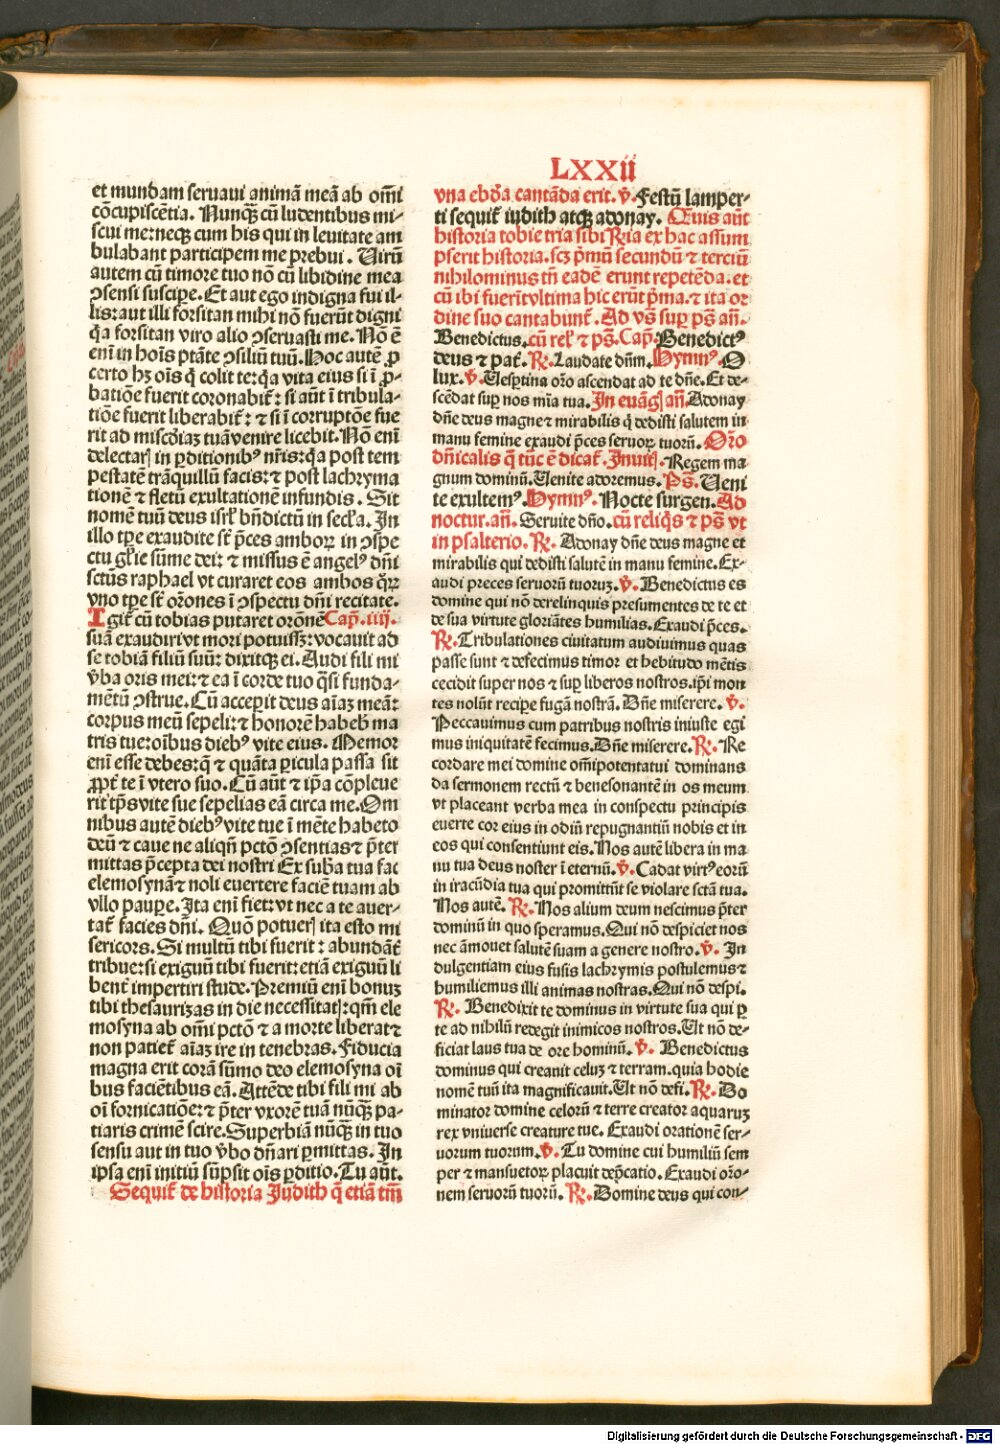 LXXII
et mundam seruaui animā meā ab om̄i
cōcupiscētia. Nunq̄ȝ cū ludentibus mi-
scui me: neqȝ cum his qui in leuitate am
bulabant participem me prebui. Uirū
autem cū timore tuo nō cū libidine mea
ꝯsensi suscipe. Et aut ego indigna fui il-
lis: aut illi forsitan mihi nō fuerūt digni
q̄a forsitan viro alio ꝯseruasti me. Nō ē
eni̅ in hoi̅s ptāte ꝯsiliū tuū. Hoc autē ꝓ
certo hȝ oi̅s q̄ colit te: q̄a vita eius si ī ꝓ-
batiōe fuerit coronabit᷑: si aūt ī tribula-
tiōe fuerit liberabit᷑: ⁊ si ī corruptōe fue
rit ad misc̄diaȝ tuā venire licebit. Nō eni̅
delectarꝭ in ꝑditionibꝰ nr̄is: q̄a post tem
pestatē trāquillū facis: ⁊ post lachryma
tionē ⁊ fletū exultationē infundis. Sit
nomē tuū deus isrl̄ bn̄dictū in secl̄a. In
illo tp̄e exaudite st̄ p̄ces amboꝝ in ꝯspe
ctu gl̄ie sūme dei: ⁊ missus ē angelꝰ dn̄i
sctūs raphael vt curaret eos ambos q̄ꝝ
vno tp̄e st̄ or̄ones ī ꝯspectu dn̄i recitate.
Igit᷑ cū tobias putaret orōnē Cap̄. iiij.
suā exaudiri vt mori potuissȝ: vocauit ad
se tobiā filiū suū: dixitqȝ ei. Audi fili mi
v̄ba oris mei: ⁊ ea ī corde tuo q̄si funda-
mētū ꝯstrue. Cū acceperit deus ai̅aȝ meā:
corpus meū sepeli: ⁊ honorē habeb̄ ma
tri tue: oi̅bus diebꝰ vite eius. Memor
eni̅ esse debes: q̄ ⁊ quāta ꝑicula passa sit
ꝓpt᷑ te ī vtero suo. Cū aūt ⁊ ip̄a cōpleue
rit tp̄s vite sue sepelias eā circa me. Om
nibus autē diebꝰ vite tue ī mēte habeto
deū ⁊ caue ne aliqn̄ pctō ꝯsentias ⁊ p̄ter
mittas p̄cepta dei nostri Ex sub̄a tua fac
elemosynā ⁊ noli euertere faciē tuam ab
vllo paupe. Ita eni̅ fiet: vt nec a te auer-
tat᷑ facies dn̄i. Quō potuerꝭ ita esto mi
sericors. Si multū tibi fuerit: abundāt᷑
tribue: si exiguū tibi fuerit: etiā exiguū li
bent᷑ impertiri stude. Premiū eni̅ bonuȝ
tibi thesaurizas in die necessitatꝭ: qm̄ ele
mosyna ab om̄i pctō ⁊ a morte liberat ⁊
non patiet᷑ ai̅aȝ ire in tenebras. Fiducia
magna erit corā sūmo deo elemosyna oi̅
bus faciētibus eā. Attēde tibi fili mi ab
oi̅ fornicatiōe: ⁊ p̄ter vxorē tuā nūq̄ȝ pa-
tiaris crimē scire. Superbiā nūq̄ȝ in tuo
sensu aut in tuo v̄bo dn̄ari ꝑmittas. In
ipsa eni̅ initiū sūpsit oi̅s ꝑditio. Tu aūt.
Sequit᷑ de historia Judith q̄ etiā tm̄
vna ebd̄a cantāda erit. v̄. Festū lamper-
ti sequit᷑ iudith atqȝ adonay. Quis aūt
historia tobie tria sibi R̄ria ex hac assum
pserit historia. scȝ p̄mū secundū ⁊ terciū
nihilominus tn̄ eadē erunt repetēda. et
cū ibi fuerīt vltima hic erūt p̄ma. ⁊ ita or
dine suo cantabunt᷑. Ad vs̄ sup̄ ps̄ an̄.
Benedictus. cū rel̄ ⁊ ps̄. Cap̄. Benedictꝰ
deus ⁊ pat᷑. R̄. Laudate dn̄m. Hymnꝰ. O
lux. v̄. Uesꝑtina or̄o ascendat ad te dn̄e. Et de-
scēdat sup̄ nos mi̅a tua. In euāgꝭ an̄. Adonay
dn̄e deus magne ⁊ mirabilis q̄ dedisti salutem in
manu femine exaudi p̄ces seruoꝝ tuorū. Or̄o
dn̄icalis q̄ tūc ē dicat᷑. Inuitꝭ. Regem ma
gnum dominū. Uenite adoremus. Ps̄. Ueni
te exultemꝰ. Hymnꝰ. Nocte surgen. Ad
noctur. an̄. Seruite dn̄o. cū reliq̄s ⁊ ps̄ vt
in psalterio. R̄. Adonay dn̄e deus magne et
mirabilis qui dedisti salutē in manu femine. Ex-
audi preces seruorū tuoruȝ. v̄. Benedictus es
domine qui nō derelinquis presumentes de te et
de sua virtute gloriātes humilias. Exaudi p̄ces.
R̄. Tribulationes ciuitatum audiuimus quas
passe sunt ⁊ defecimus timor et hebitudo mētis
cecidit super nos ⁊ sup̄ liberos nostros. ip̄i mon
tes nolūt recipe fugā nostrā. Dn̄e miserere. v̄.
Peccauimus cum patribus nostris iniuste egi
mus iniquitatē fecimus. Dn̄e miserere. R̄. Re
cordare mei domine om̄ipotentatui dominans
da sermonem rectū ⁊ benesonantē in os meum
vt placeant verba mea in conspectu principis
euerte cor eius in odiū repugnantiū nobis et in
eos qui consentiunt eis. Nos autē libera in ma
nu tua deus noster ī eternū. v̄. Cadat virtꝰ eorū
in iracūdia tua qui promittūt se violare sctā tua.
Nos autē. R̄. Nos alium deum nescimus p̄ter
dominū in quo speramus. Qui nō despiciet nos
nec āmouet salutē suam a genere nostro. v̄. In
dulgentiam eius fusis lachrymis postulemus ⁊
humiliemus illi animas nostras. Qui nō despi.
R̄. Benedixit te dominus in virtute sua qui ꝑ
te ad nihilū redegit inimicos nostros. Ut nō de-
ficiat laus tua de ore hominū. v̄. Benedictus
dominus qui creauit celuȝ ⁊ terram. quia hodie
nomē tuū ita magnificauit. Ut nō defi. R̄. Do
minator domine celorū ⁊ terre creator aquaruȝ
rex vniuerse creature tue. Exaudi orationē ser-
uorum tuorum. v̄. Tu domine cui humiliū sem
per ⁊ mansuetoꝝ placuit dep̄catio. Exaudi or̄o-
nem seruorū tuorū. R̄. Domine deus qui con-
Digitalisierung gefördert durch die Deutsche Forschungsgemeinschaft - DFG